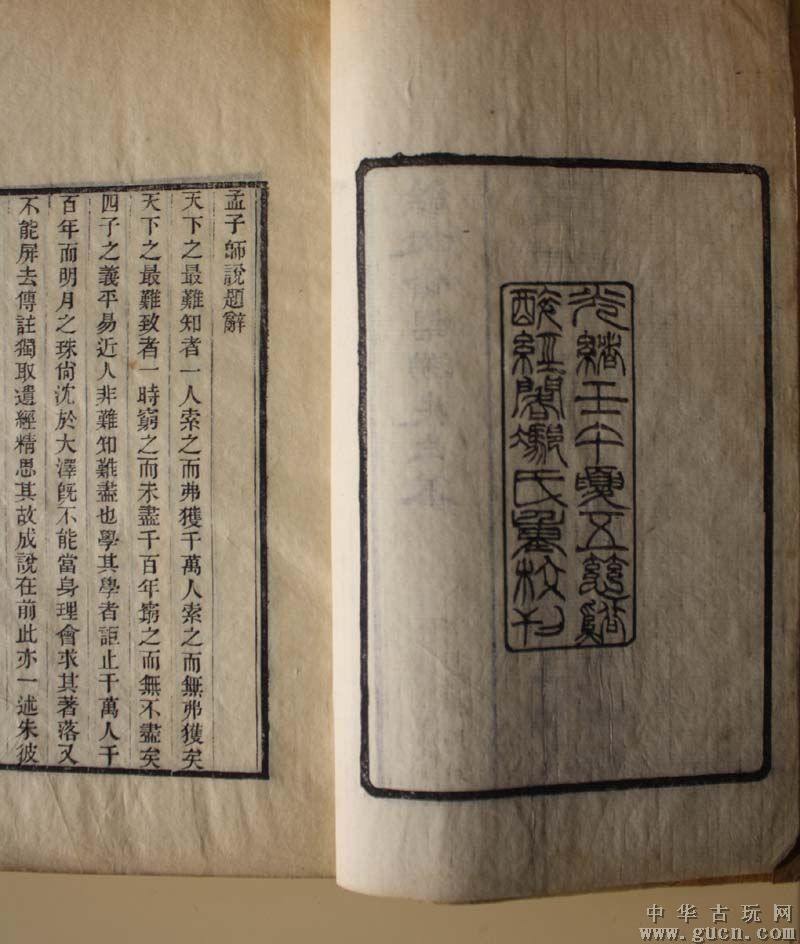 光緒壬午夏五慈谿
醉經閣馮氏重校刊
孟子師說題辭
天下之最難知者一人索之而弗獲千萬人索之而無弗獲矣
天下之最難致者一時窮之而未盡千百年窮之而無不盡矣
四子之義平易近人非難知難盡也學其學者詎止千萬人千
百年而明月之珠尙沈於大澤旣不能當身理會求其著落又
不能屏去傳註獨取遺經精思其故成說在前此亦一述朱彼
中华古玩网
www.gucn.com